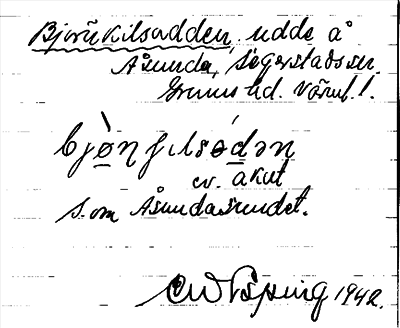 Björnkilsudden, udde å
Åsunda, Segerstads sn.
Grums hd. Värml.
bjø̀nɟɩlsódən
ev. akut
S. om Åsundasundet.
1942.